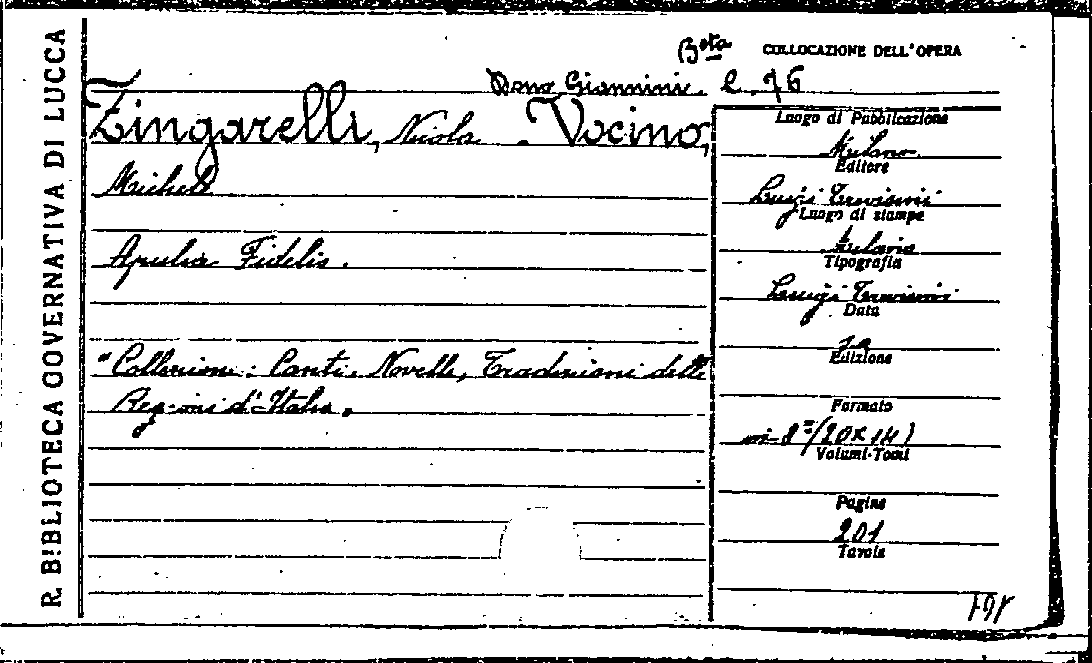 R. BIBLIOTECA GOVERNATIVA DI LUCCA
B.ta
COLLOCAZIONE DELL'OPERA
Dono Giannini. e. 76
Zingarelli, Nicola. Vocino,
Michele
Apulia Fidelis.
"Collezione: Canti, Novelle, Tradizioni delle
Regioni d'Italia.
Luogo di Pubblicazione
Milano
Editore
Luigi Trevisini
Luogo di stampa
Milano
Tipografia
Luigi Trevisini
Data
Edizione
Formato
in 8° (20 x 14)
Volumi-Tomi
Pagine
201
Tavole